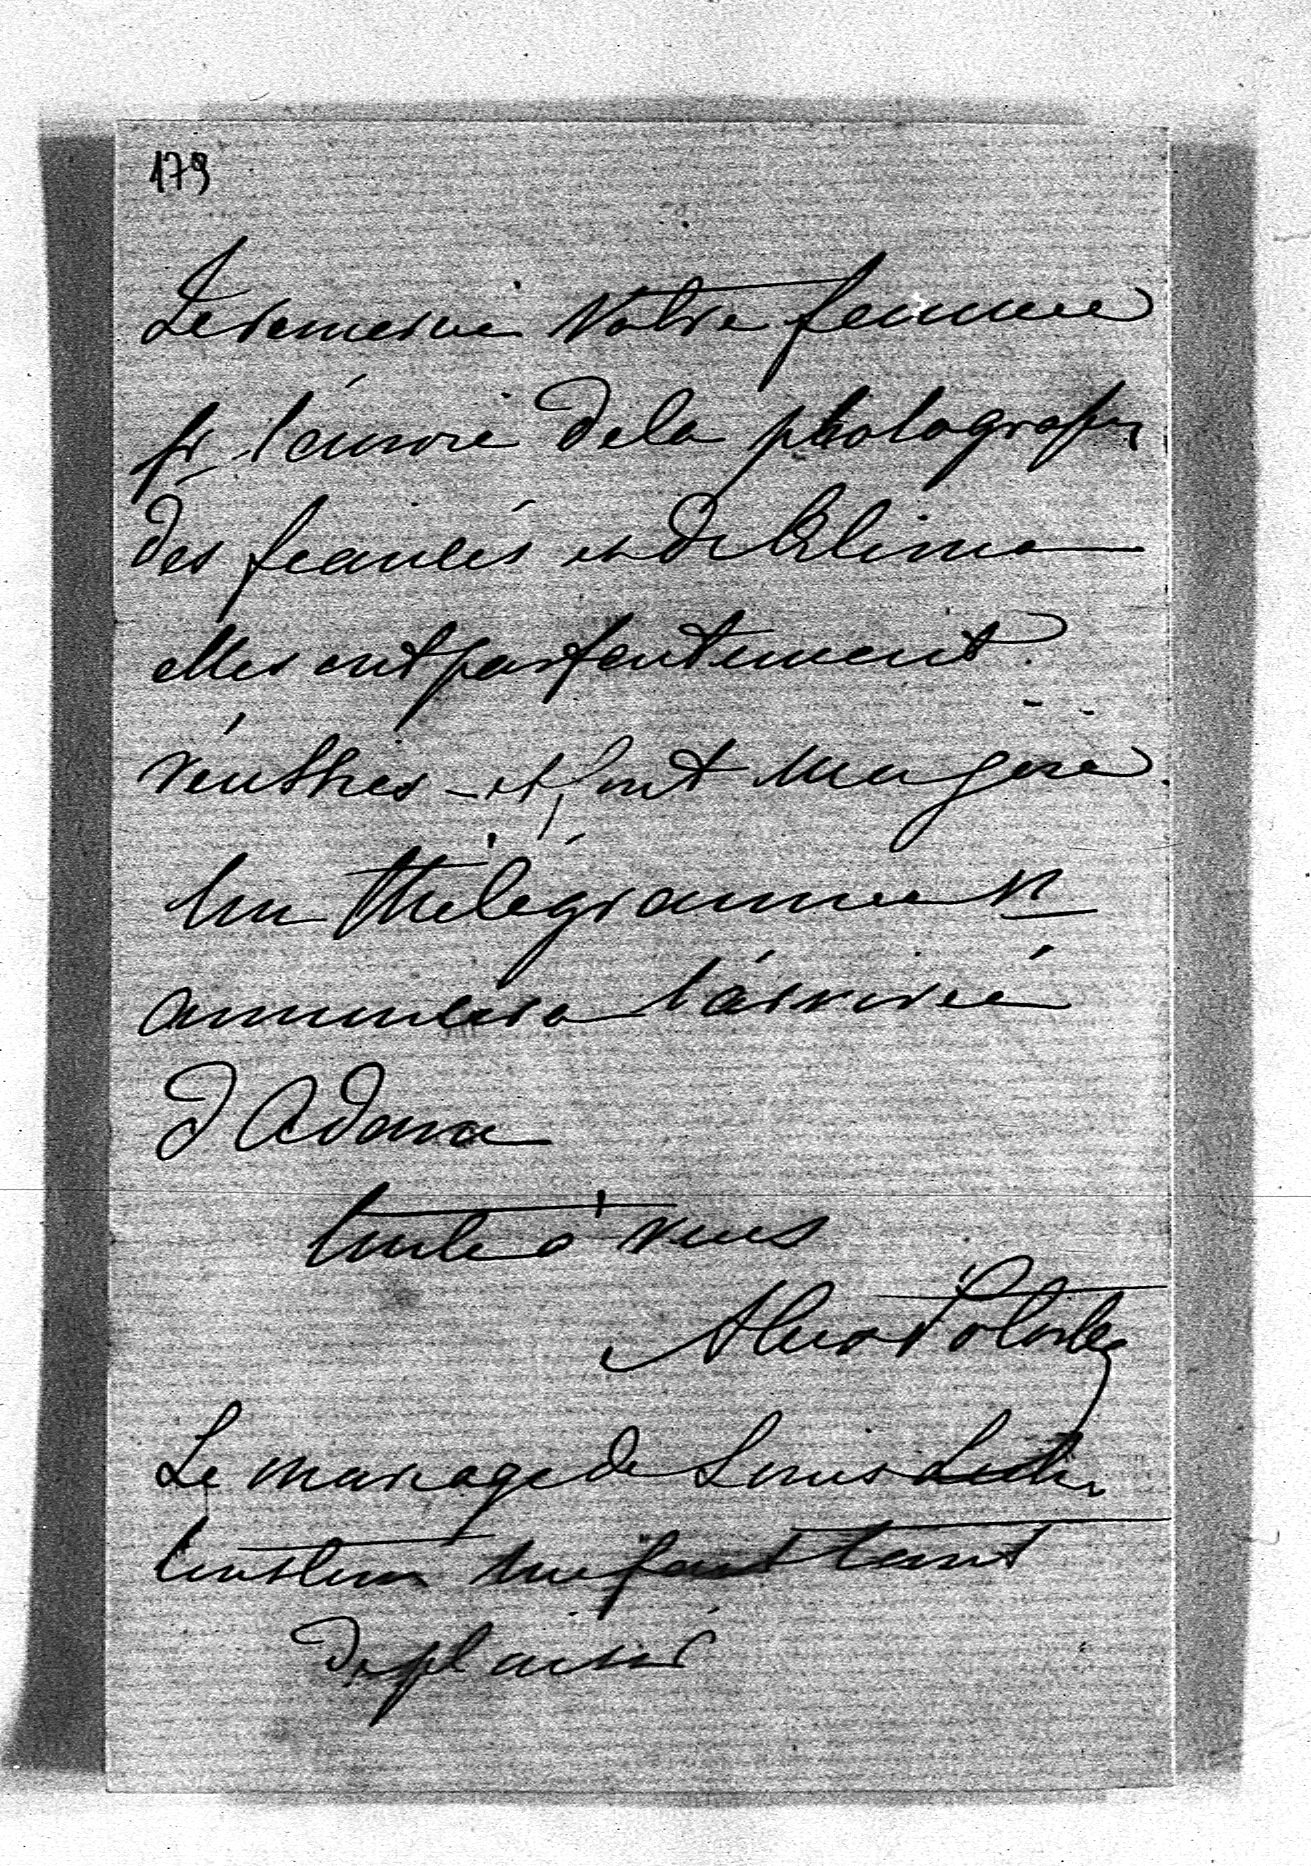 179
Je remercie Votre femme
pr l'envoi de la photografie
des fiancés et de Klima
elles ont parfaitement
réussies - et font ma joie.
Un thélégramme v
annoncera l'arrivée
d'Adana
toute à vous
Le mariage de Louis
me fait tant
de plaisir